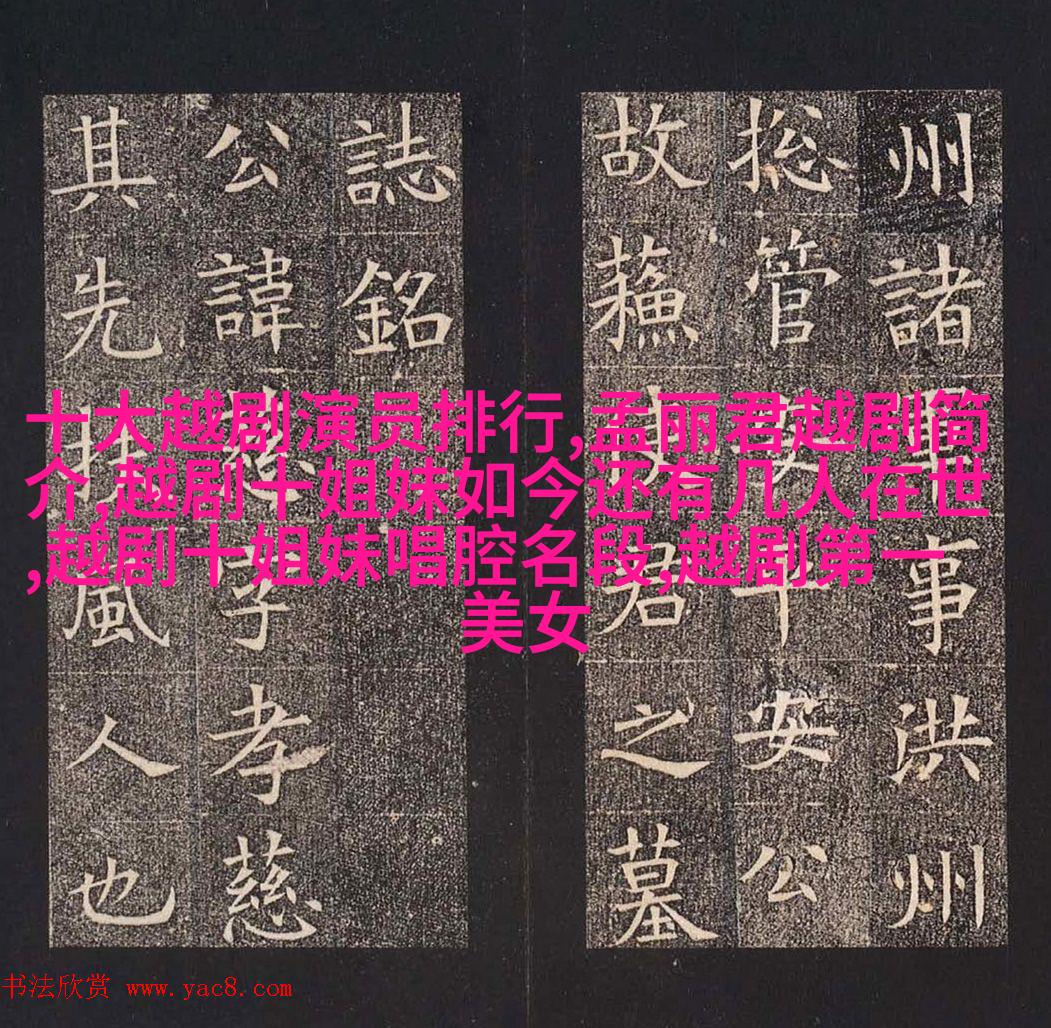 州諸軍事洪州
捴管安平安公
故蘓使君之墓
誌銘
公諱慈字孝慈
其先扶風人也
十大越剧演员排行,孟丽君越剧简
介,越剧十姐妹如今还有几人在世
,越剧十姐妹唱腔名段,越剧第一
美女
书法欣赏 www.yac8.com